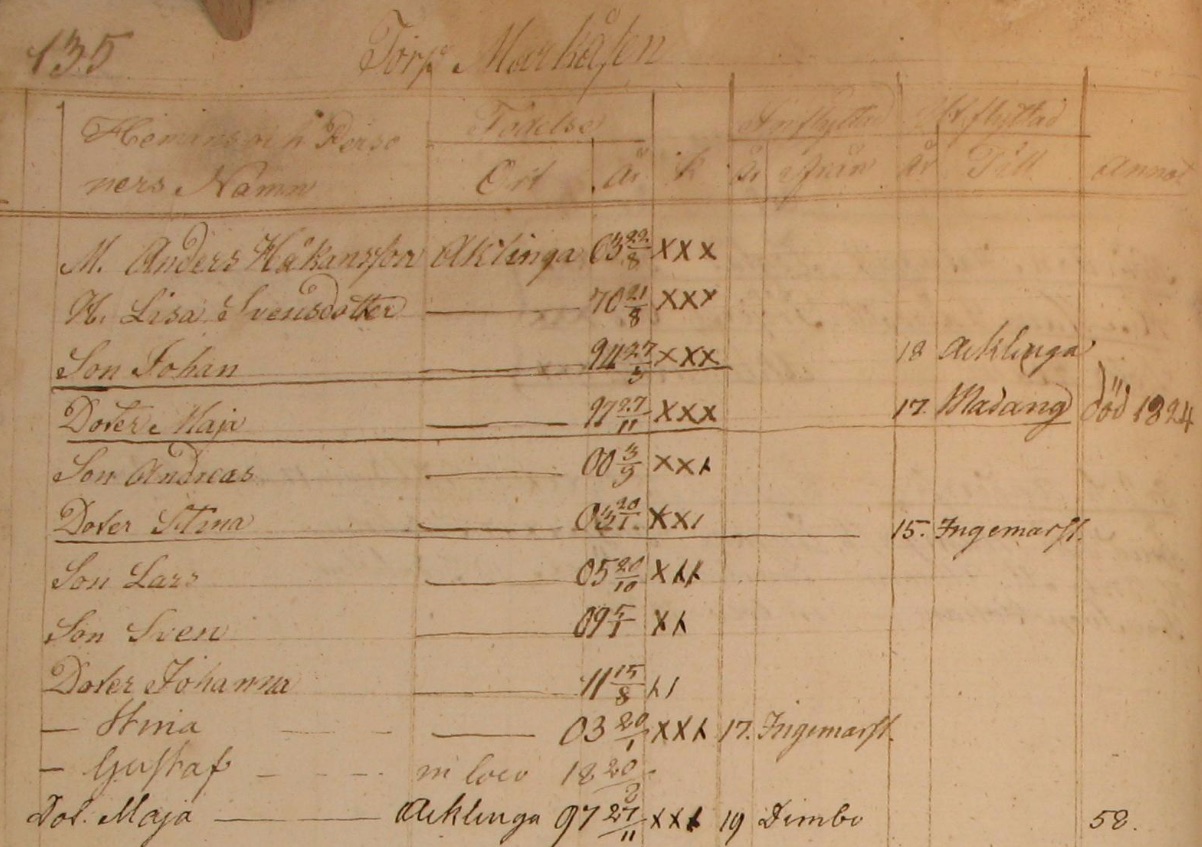 135 Torp Markåsen
Födelse Inflyttad Afflyttad
Hemans och Perso
ners Namn Ort År k År ifrån År Till Annot
M. Anders Håkansson Acklinga 63 22/8 xxx
H. Lisa Svensdotter — 70 21/8 xxx
Son Johan — 94 27/5 xxx 18 Acklinga
Doter Maja — 97 27/11 xxx 17 Madäng död 1824
Son Andreas — 00 3/9 xxx
Doter Stina — 03 20/1 xxı 15. Ingemarst.
Son Lars — 05 20/10 xxx
Son Sven — 09 5/1 xx
Doter Johanna — 11 15/8
— Stina — 03 20/1 xxx 17. Ingemarst.
— Gustaf — in loco 18 20/8
Dot. Maja — Acklinga 97 27/11 xxx 19 Dimbo 58.